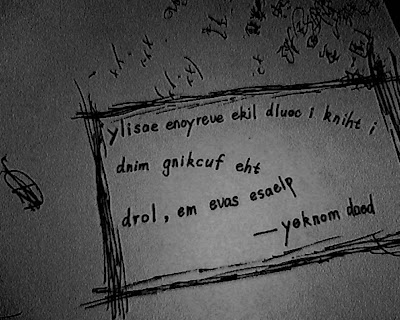 ylisae enoyreve ekil dluoc i kniht i
dnim gnikcuf eht
drol, em evas esaelp
—yeknom daed